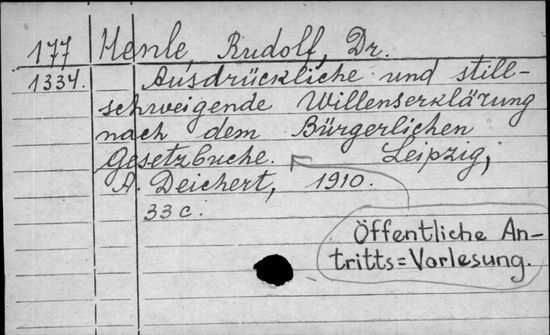 177 Henle, Rudolf, Dr.
1334. Ausdrückliche und still-
schweigende Willenserklärung
nach dem Bürgerlichen
Gesetzbuche. Leipzig,
A. Deichert, 1910.
33 c.
Öffentliche An-
tritts=Vorlesung.